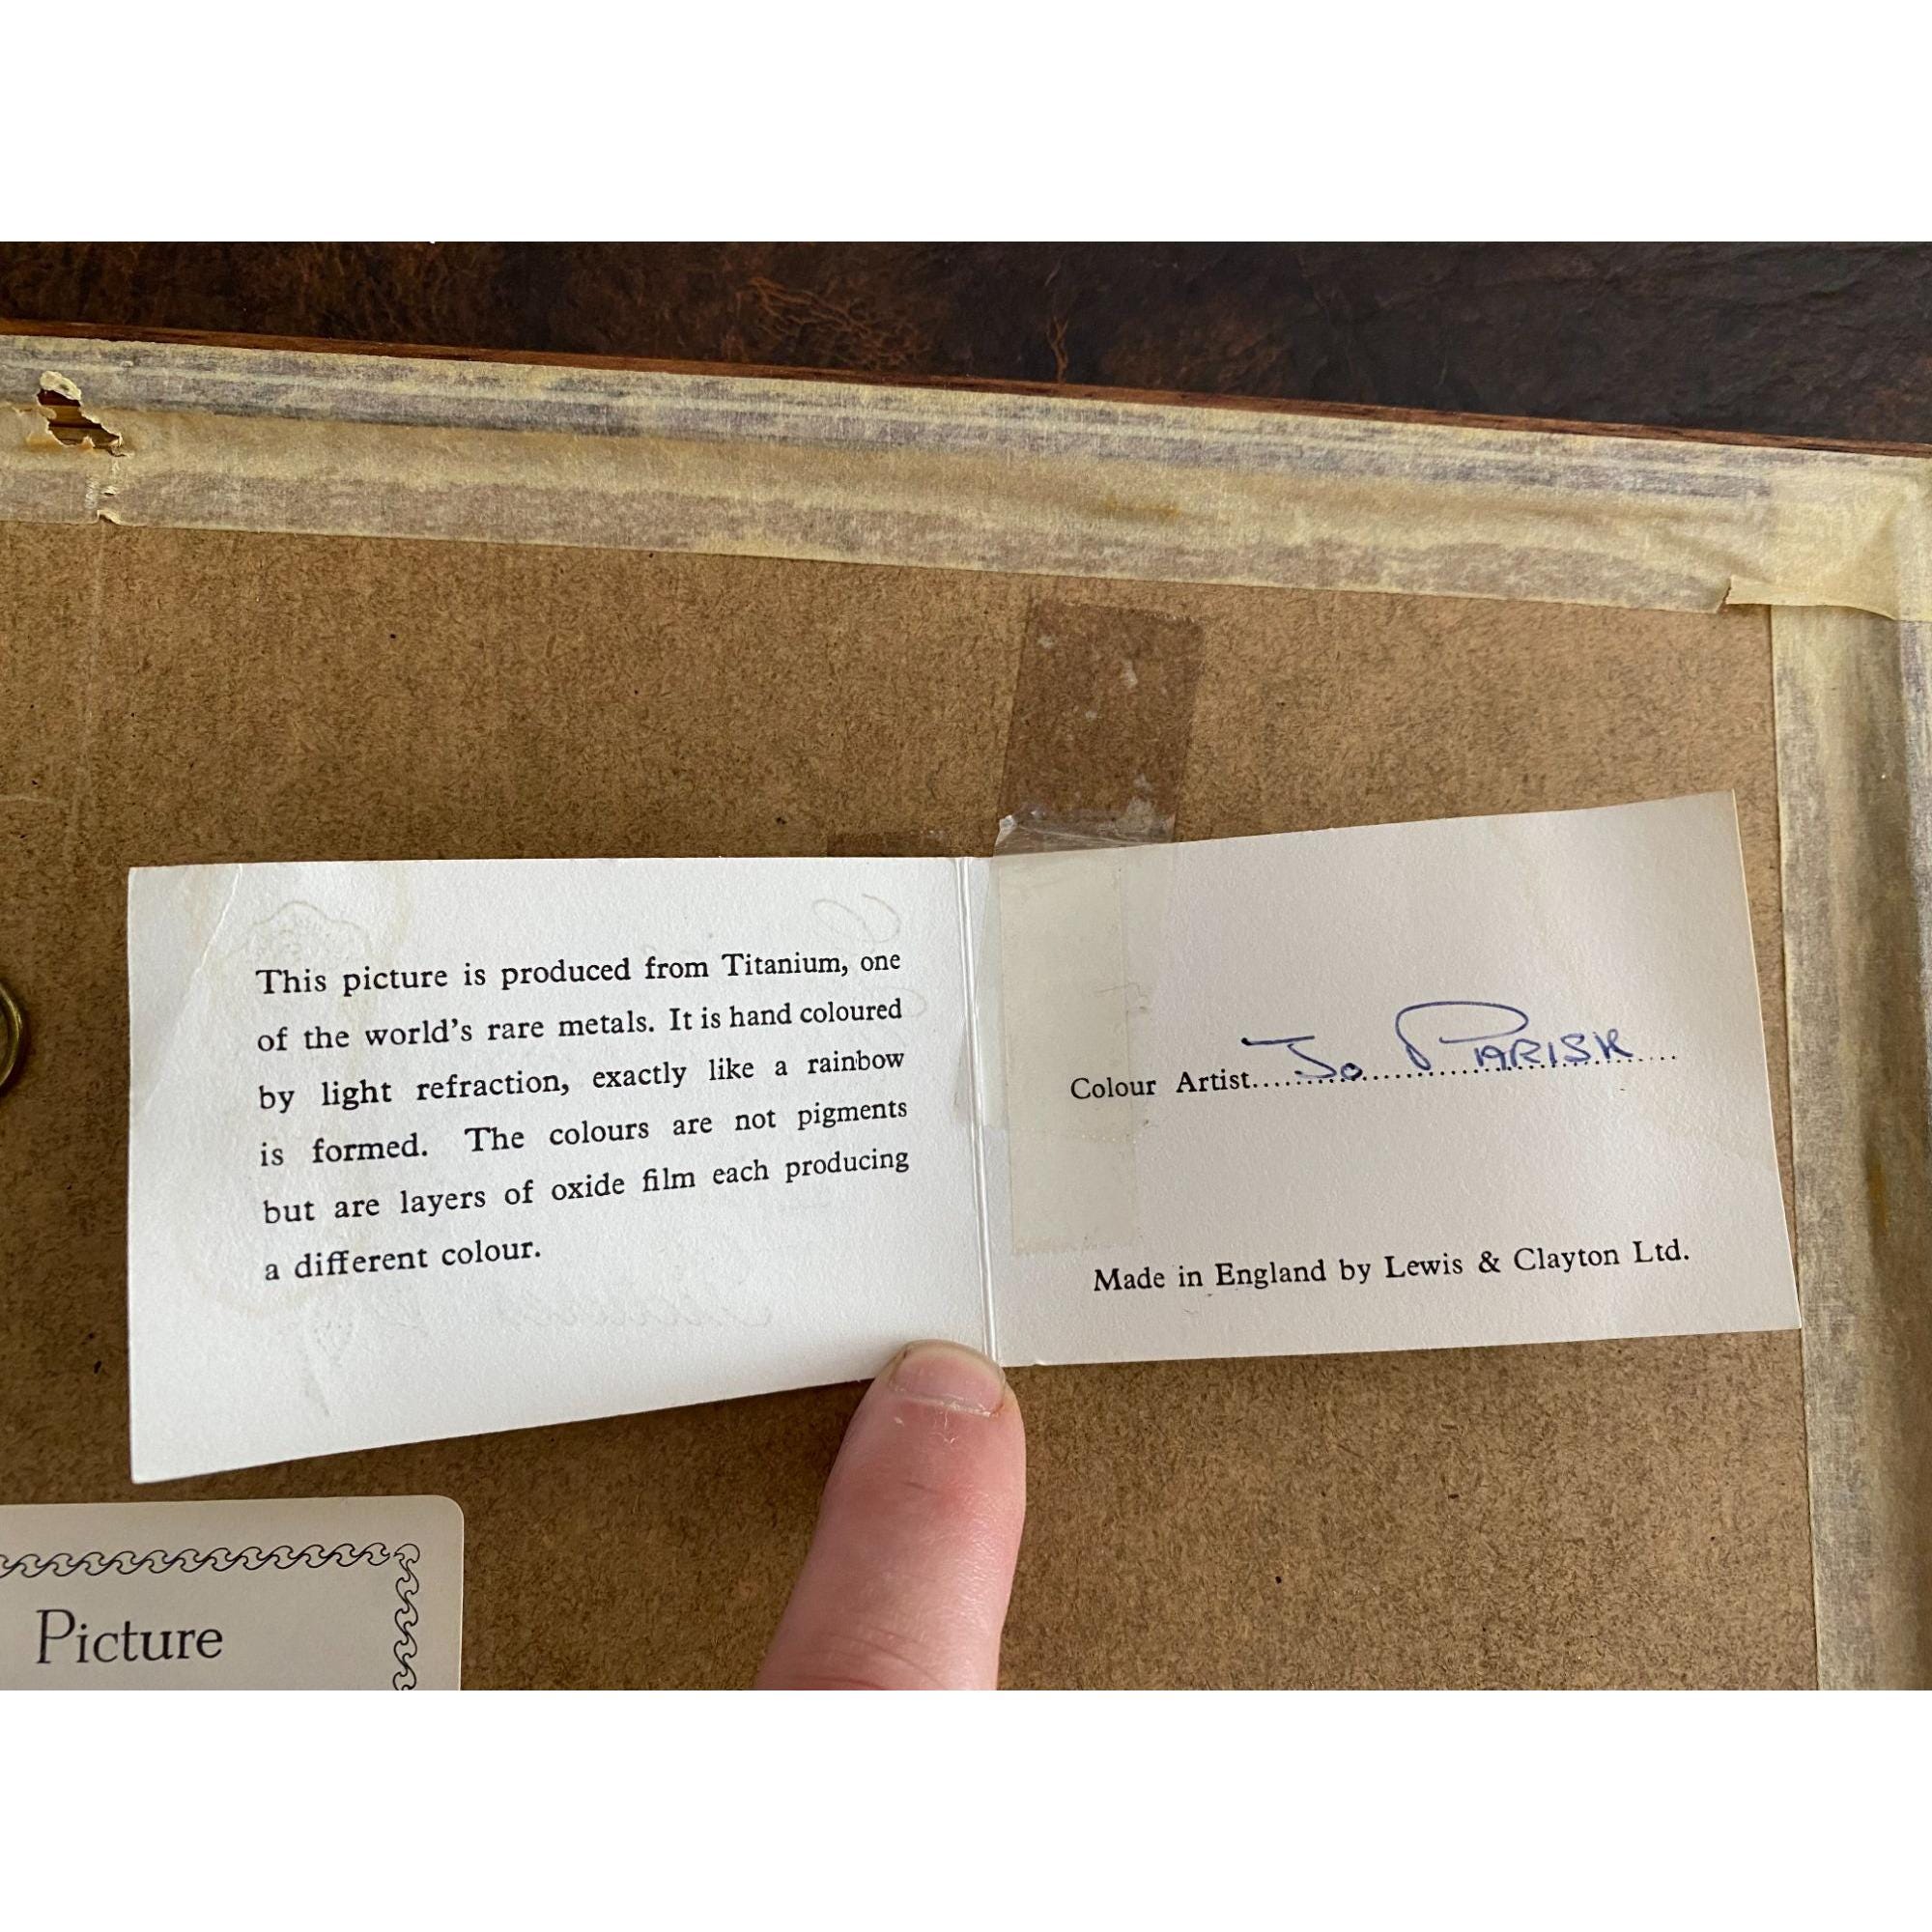 This picture is produced from Titanium, one
of the world's rare metals. It is hand coloured
by light refraction, exactly like a rainbow
is formed. The colours are not pigments
but are layers of oxide film each producing
a different colour.
Colour Artist.....Jo Parish.....
Made in England by Lewis & Clayton Ltd.
Picture